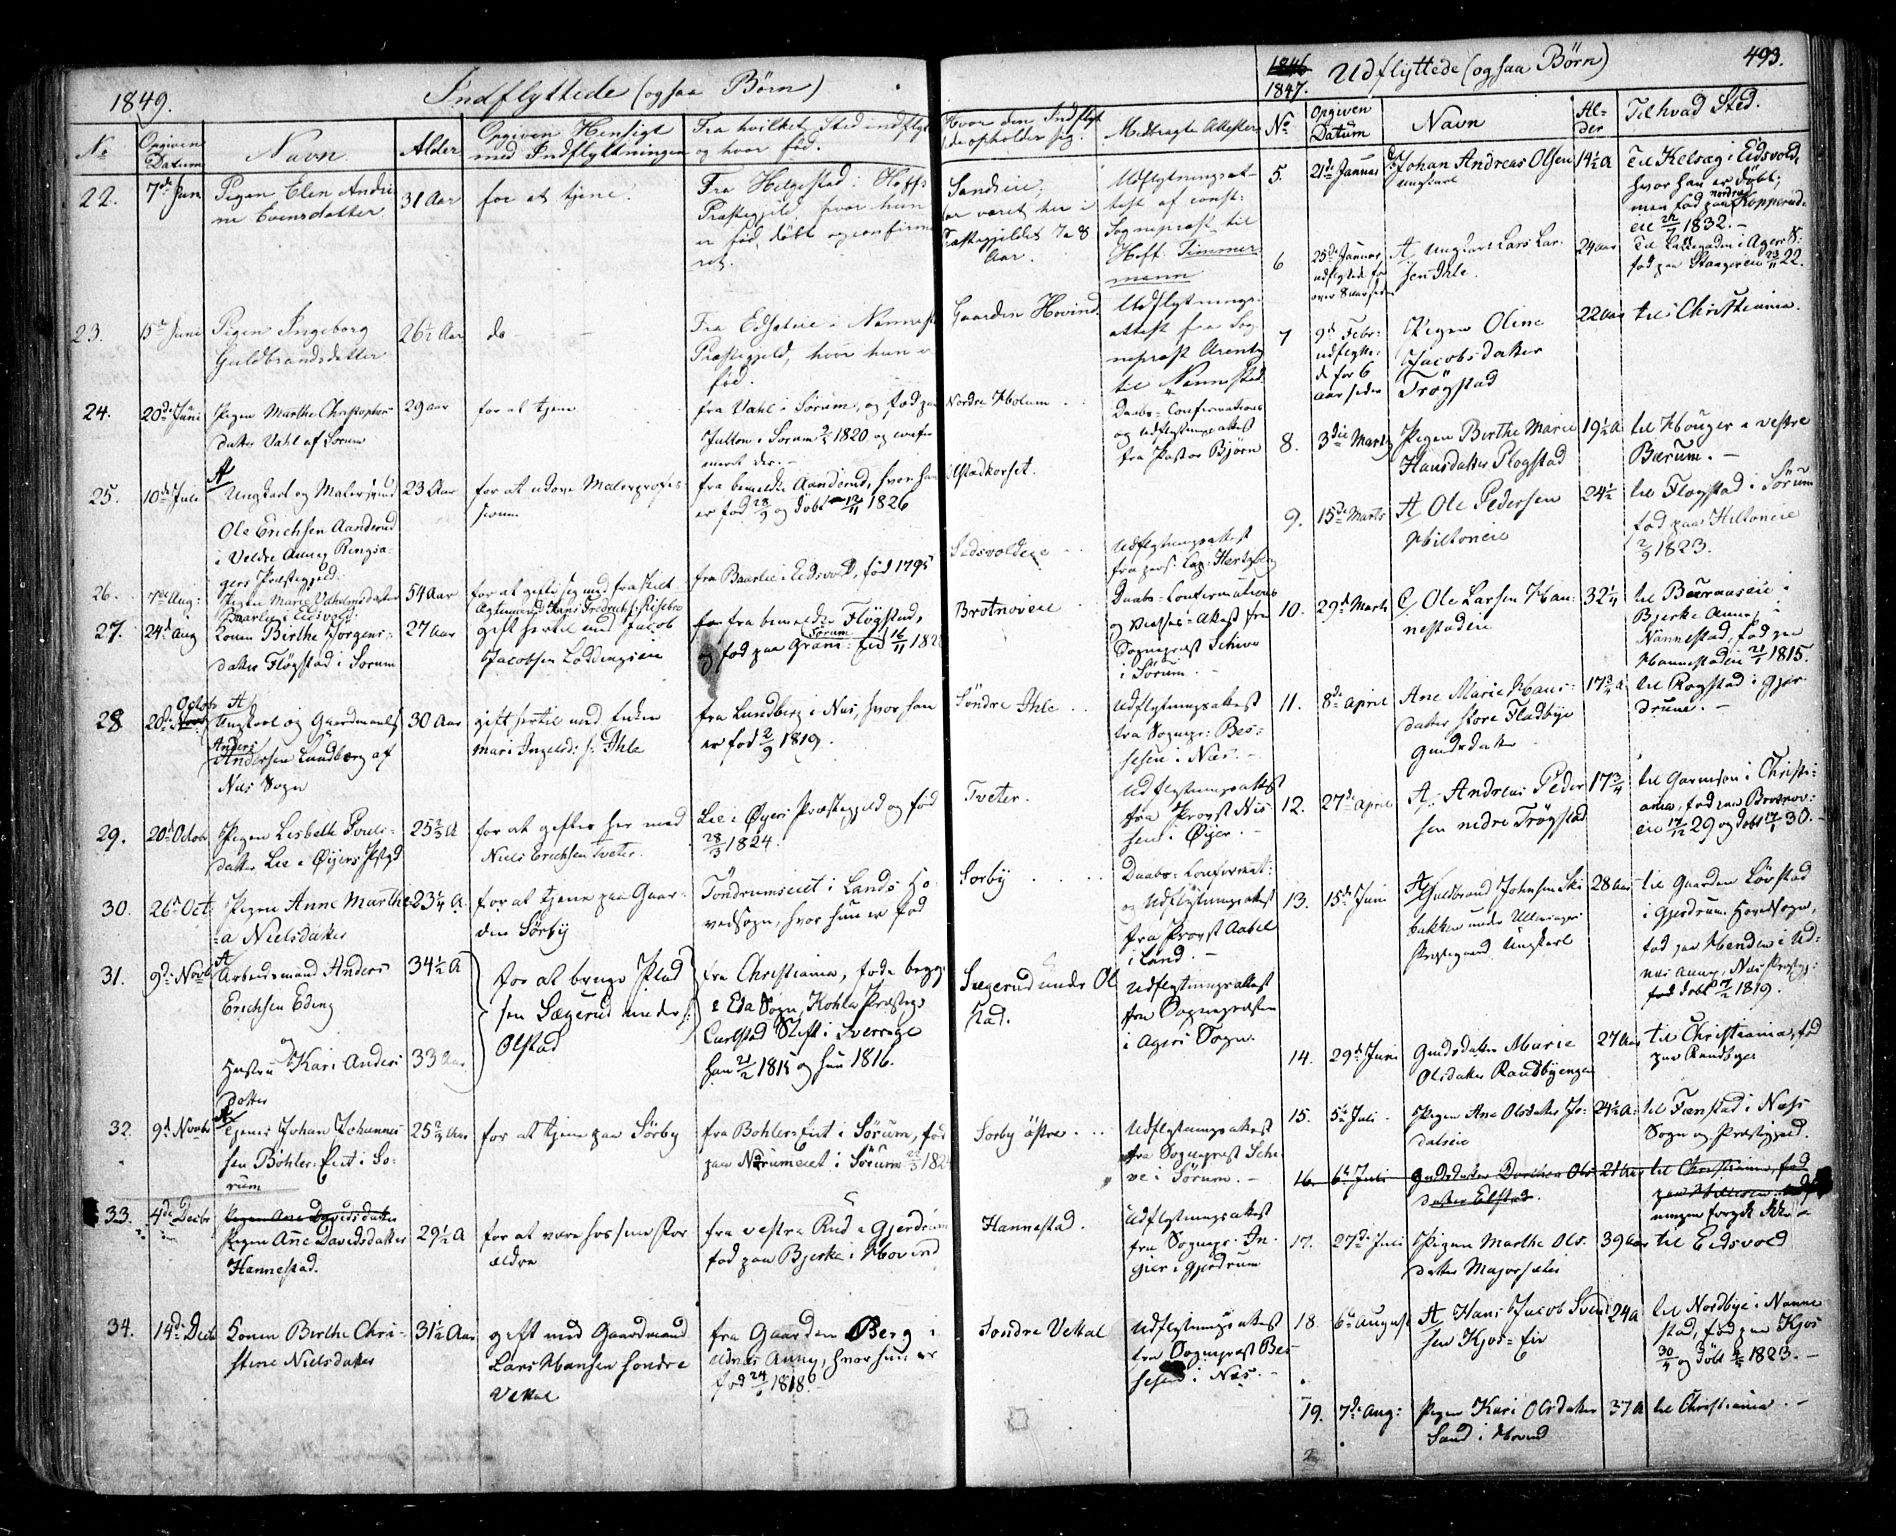 1849.
Indflyttede (ogsaa Børn)
No
Opgiven Datum
Navn.
Alder
Opgiven Hensigt
med Indflyttningen
Fra hvilket Sted indflyt
og hvor fød.
Hvor den Indflyt
opholder sig.
Medbragte Attester
22.
7de Juni
Pigen Elen Andri
ne Evensdatter
31 Aar
for at tjene.
Fra Helgestad i Hoffs
Præstegjeld, hvor hun
er fød, døbt og confirme
ret.
Sandeie,
har været her i
Præstegjeldet 7 a 8
Aar.
Udflytningsat-
test af const:
Sognepræst til
Hoff Timmer-
mann
23.
Juni
Pigen Ingeborg
Guldbrandsdatter
26½ Aar
do
Fra Edsateie i Nannesta
Præstegjeld, hvor hun e
fød.
Gaarden Hovind.
Udflytnings-
attest fra Sog
nepræst Arentz
til Nannestad.
24.
20de Juni
Pigen Marthe Christopher-
datter Vahl af Sørum
29 aar
for at tjene
fra Vahl i Sørum, og fød paa
i Sørum 1820 og confir
meret der.-
Nordre Holum
Daabs- Confirmations
og udflytningsattest
fra Pastor Bjørn
25.
10de Juli
A
Ungkarl og Malersvend
Ole Erichsen Aanderud
i Veldre Annex Ringsa-
gers Præstegjeld.
23 Aar
for at udøve Malerprofes-
sionen
fra bemeldte Aanderud, hvor han
er fød 28/9 og døbt 12/11 1826
Olstadkorset.
Udflytningsattest
fra pers: Cap: Hertzberg
26.
7de Aug:
Pigen Marie Vilhelmsdatter
Baarlie i Eidsvold
54 Aar
for at gifte sig med fraskilt
fra Baarlie i Eidsvold, fød 1795
27.
24de Aug
Konen Birthe Jørgens-
datter Flogstad i Sørum
27 aar
gift hertil med Jacob
Jacobsen Løddingseie
fra bemeldte Flogstad,
Sørum
og fød paa 16/11
Brotnoveie
Daabs- Confirmations
og Vielses- Attest fra
Sognepræst Schive
i Sørum.
28
20de Octobr
A
Ungkarl og Gaardmands
Anders
Andersen Lundberg af
Næs Sogn
30 Aar
gift hertil med Enken
Mari Ingelsd: s: Ihle
fra Lundberg i Næs, hvor han
er fød 2/9 1819.
Søndre Ihle
Udflytningsattest
fra Sognepr: Bes-
sesen i Næs.-
29.
20de Octobr
Pigen Lisbeth Povels-
datter Lie i Øiers Pstgjd
25⅔ A
for at giftes her med
Niels Erichsen Tveter.
Lie i Øyers Præstegjeld og fød
28/3 1824.
Tveter.
Udflytningsattest
fra Provst Nis-
sen i Øyer.-
30.
26de Oct.
Pigen Anne Marthe-
a Nielsdatter
23¼ A.
for at tjene paa Gaar-
den Sørby
Tondrumseiet i Lands Ho-
vedsogn, hvor hun er fød
Sørby
Daabs- Confirmat:
og Udflytningsattest
fra Provst Aabel
i Land.-
31.
9de Novb
A
Arbeidsmand Anders
Erichsen Eding
34½ A
Hustru Kari Anders
Datter
33 Aar
for at bruge Plad-
sen Sægerud under
Olstad
fra Christiania, føde begge
i Eda Sogn, Kohla Præstegj
Carlstad Stift i Sverrige
han 21/2 1815 og hun 1816.
Sægerud under Ol
stad.
Udflytningsattest
fra Sognepræsten
i Agers Sogn.
32.
9de Novbr
A
Tjener Johan Johannes
sen Bøhler-Eiet i Sø-
rum
25¾ Aar
for at tjene paa Sørby
fra Bøhler-Eiet i Sørum, fød
paa Nørumeiet i Sørum 22/3 182
Sørby østre
Udflytningsattest
fra Sognepræst Schi-
ve i Sørum.-
33.
4de Decbr
Pigen Ane Davidsdatter
Pigen Anne Davidsdatter
Hannestad.
29½ A
for at være hos sine For
ældre
fra vestre Rud i Gjerdrum
fød paa Bjerke i Hovind
Hannestad.
Udflytningsattest
fra Sognepr: In-
gier i Gjerdrum
34.
14de Decbr
Konen Birthe Chri-
stine Nielsdatter
31½ Aar
gift med Gaardmand
Lars Hansen søndre
Vethal
fra Gaarden Berg i
Udnæs Annex, hvor hun er
fød 24/ 1818
Søndre Vethal
Udflytningsattest
fra Sognepræst Bes-
sesen i Næs.-
1846
1847.
Udflyttede (ogsaa Børn)
493.
No
Opgiven Datum
Navn
Al-
der
Til hvad Sted.
5.
21de Januar
Johan Andreas Olsen
Ungkarl
14½ A
Til Kelsæg i Eidsvold,
hvor han er døbt;
men fød paa nordre Kopperud-
eie 1832.-
6
25de Januar,
udflyttede for
over 8 aar siden
A Ungkarl Lars Lar-
sen Ihle.
24 aar
Til Ladegaden i Agers S:
fød paa Stangereie 23/11 22.
7
9de Febr:
udflytte-
de for 6
aar siden
Pigen Oline
Jacobsdatter
Trøgstad
22 aar
til Christiania.
8.
3die Marts
Pigen Birthe Marie
Hansdatter Flogstad
19½ A
til Houger i vestre
Bærum.-
9.
15de Marts
A Ole Pedersen
Hiltoneie
24½
til Flogstad i Sørum
fød paa Hiltoneie
2/9 1823.
10.
29de Marts
Ole Larsen Han-
nestadeie
32¼
til Baaraaseie i
Bjerke Annex i
Nannestad, fød paa
Hannestadeie 21/1 1815.
11.
8de April
Ane Marie Hans-
datter store Fladbye
Gaardsdatter
17¾ A
til Rogstad i Gjer-
drum.-
12.
27de April
A: Andreas Peder
sen nedre Trøgstad
17¾
til Garnison i Christi-
ania, fød paa Brotnov-
eie 17/12 29 og døbt 17/1 30.-
13.
15de Juni
A Guldbrand Johnsen Ski
bakken under Ullensager
Præstegaard Ungkarl
28 aar
til Gaarden Løvstad
i Gjerdrum Hovedsogn,
fød paa Henden i Ud-
næs Annex, Næs Præstegj:
fød døbt 17/2 1819.
14.
29de Juni
Gaardsdatter Marie
Olsdatter Randbyengen
27 Aar
til Christiania, fød
paa Randbyen
15.
5te Juli
Pigen Ane Olsdatter Jo-
dalseie
24½ A.
til Fænstad i Næss
Sogn og Præstegjeld.
16.
6te Juli
Gaardsdatter Dorthea Ols
datter Elstad.
21 Aar
til Christiania, fød
ningen foregik ikke
17.
27de Juli
Pigen Marthe Ols-
datter Majorsæter
39 aar
til Eidsvold
18.
6te August
A Hans Jacob Svend
sen Kjos-Eie
24 A
til Nordbye i Nanne
stad, fød paa Kjos
og døbt 1823.-
19.
7de Aug:
Pigen Kari Olsdatter
Sand i Hovind
37 A
til Christiania.-